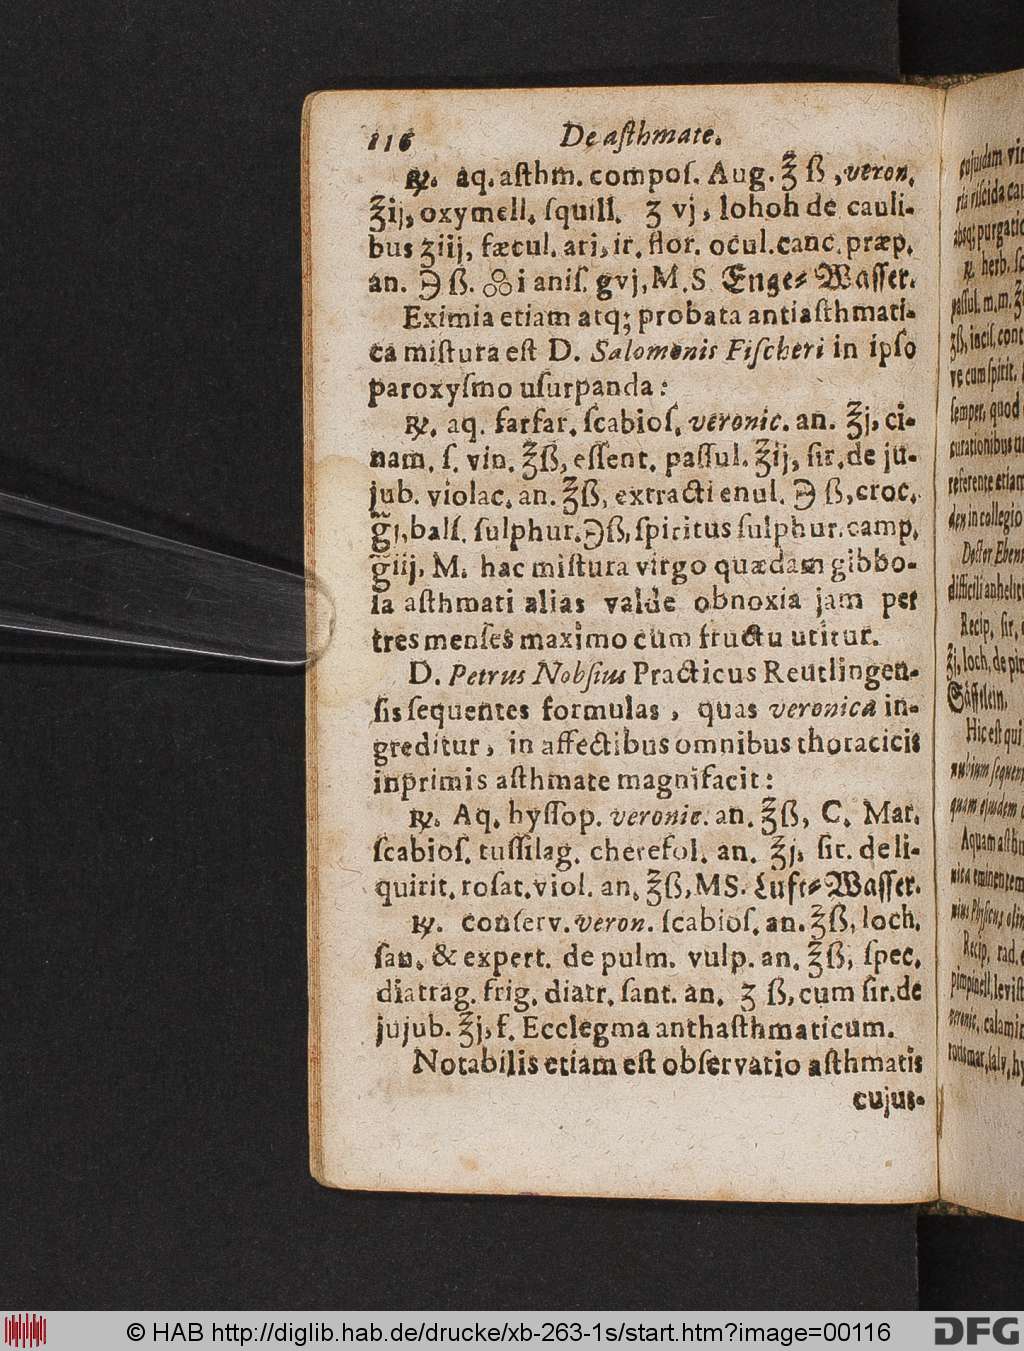 116 De asthmate.
℞. aq. asthm. compos. Aug. ℥ ß, veron.
℥ij, oxymell. squill. ʒ vj, lohoh de cauli-
bus ʒiij, fæcul. ari, ir. flor. ocul. canc. præp.
an. ℈ ß. i anis. gvj, M. S. Enge-Wasser.
Eximia etiam atq; probata antiasthmati-
ca mistura est D. Salomonis Fischeri in ipso
paroxysmo usurpanda:
℞. aq. farfar. scabios. veronic. an. ℥j, ci-
nam. s. vin. ℥ß, essent. passul. ℥ij, sir. de ju-
jub. violac. an. ℥ß, extracti enul. ℈ ß, croc.
g̃j, bals. sulphur. ℈ß, spiritus sulphur. camp.
g̃iij, M. hac mistura virgo quædam gibbo-
sa asthmati alias valde obnoxia jam per
tres menses maximo cum fructu utitur.
D. Petrus Nobsius Practicus Reutlingen-
sis sequentes formulas, quas veronica in-
greditur, in affectibus omnibus thoracicis
inprimis asthmate magnifacit:
℞. Aq. hyssop. veronic. an. ℥ß, C. Mar.
scabios. tussilag. cherefol. an. ℥j, sir. de li-
quirit. rosat. viol. an. ℥ß, MS. Luft-Wasser.
℞. conserv. veron. scabios. an. ℥ß, loch.
san. & expert. de pulm. vulp. an. ℥ß, spec.
diatrag. frig. diatr. sant. an. ʒ ß, cum sir. de
jujub. ℥j, f. Ecclegma anthasthmaticum.
Notabilis etiam est observatio asthmatis
cujus-
© HAB http://diglib.hab.de/drucke/xb-263-1s/start.htm?image=00116
DFG